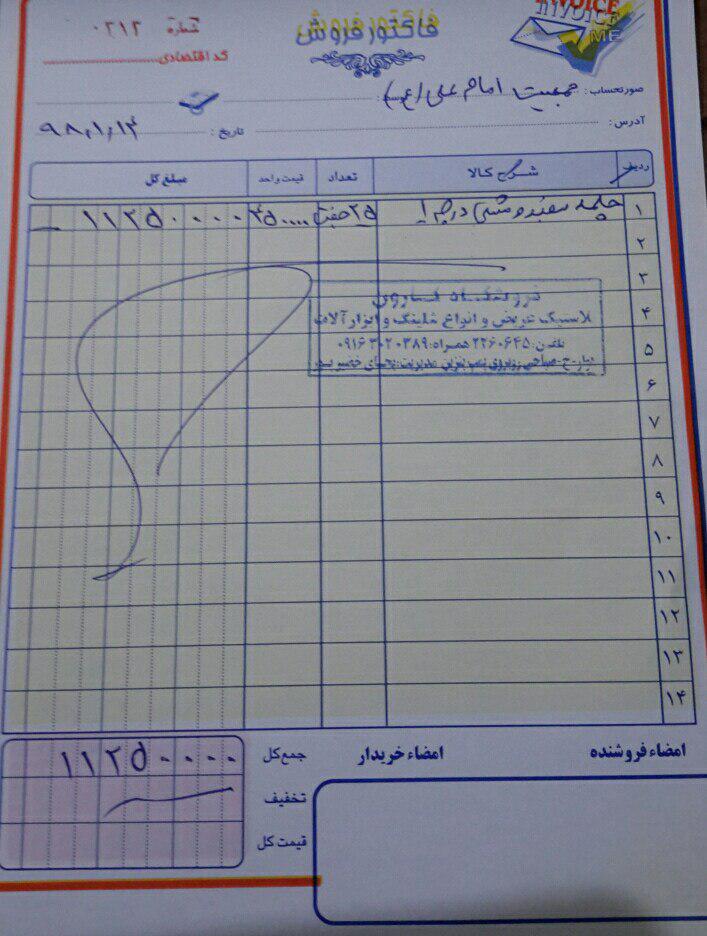 INVOICE
INVOICE
ME
فاکتور فروش
شماره ۰۲۱۲
کد اقتصادی
صورتحساب: جمعیت امام علی (ع)
آدرس:
تاریخ: ۹۸,۱,۱۴
ردیف شرح کالا تعداد قیمت واحد مبلغ کل
۱ چکمه سفید و مشکی درجه ۱ ۲۵ جفت ۴۵۰۰۰۰ ۱۱۲۵۰۰۰۰
۲
۳
فروشگاه
۴ پلاستیک عریض و انواع شلینگ و ابزارآلات
۵ تلفن: ۲۲۶۰۶۴۵ همراه: ۰۹۱۶۳۰۲۰۳۸۹
۶
۷
۸
۹
۱۰
۱۱
۱۲
۱۳
۱۴
امضاء فروشنده امضاء خریدار جمع کل ۱۱۲۵۰۰۰۰
تخفیف
قیمت کل